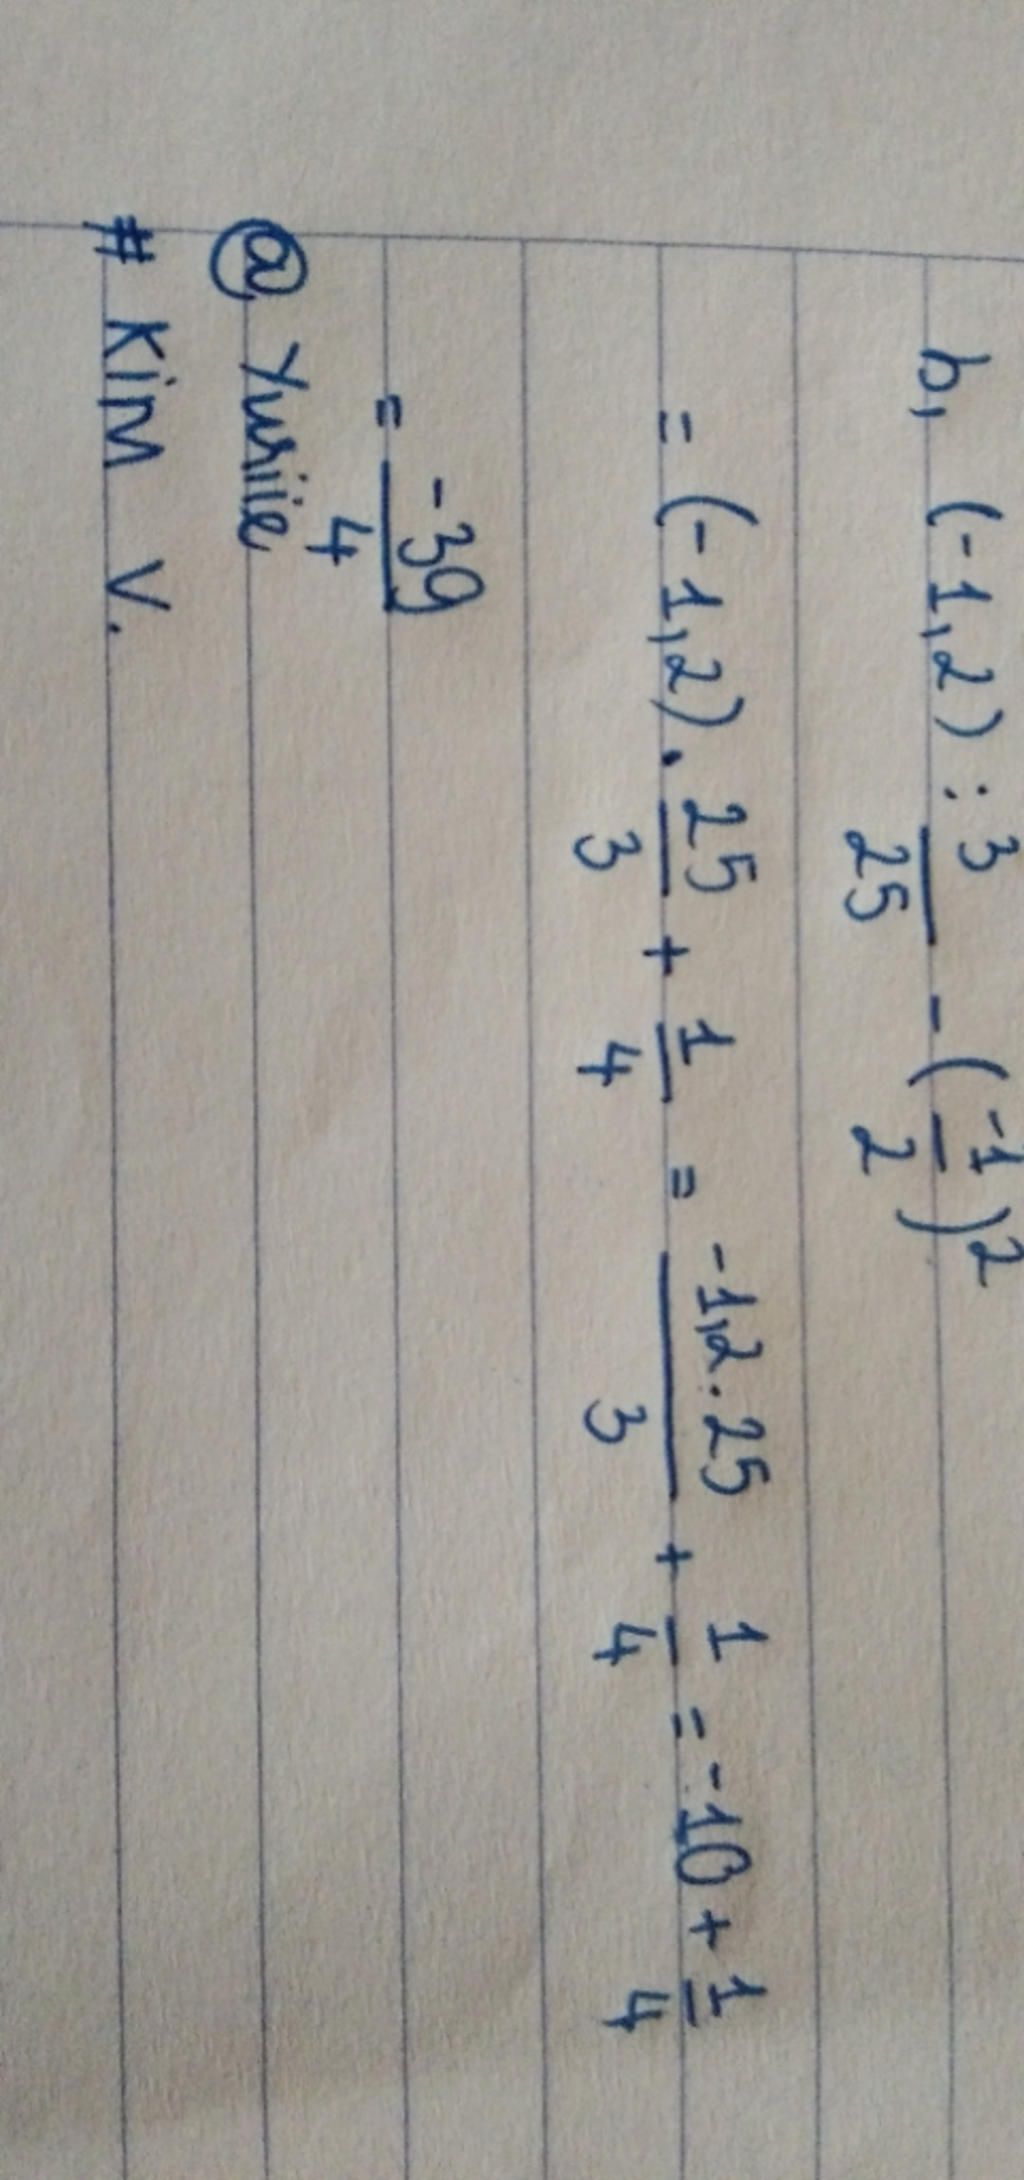 b, (-1,2) : 3/25 - (-1/2)²
= (-1,2) . 25/3 + 1/4 = -1,2.25/3 + 1/4 = -10 + 1/4
= -39/4
@ Yuriie
# Kim V.